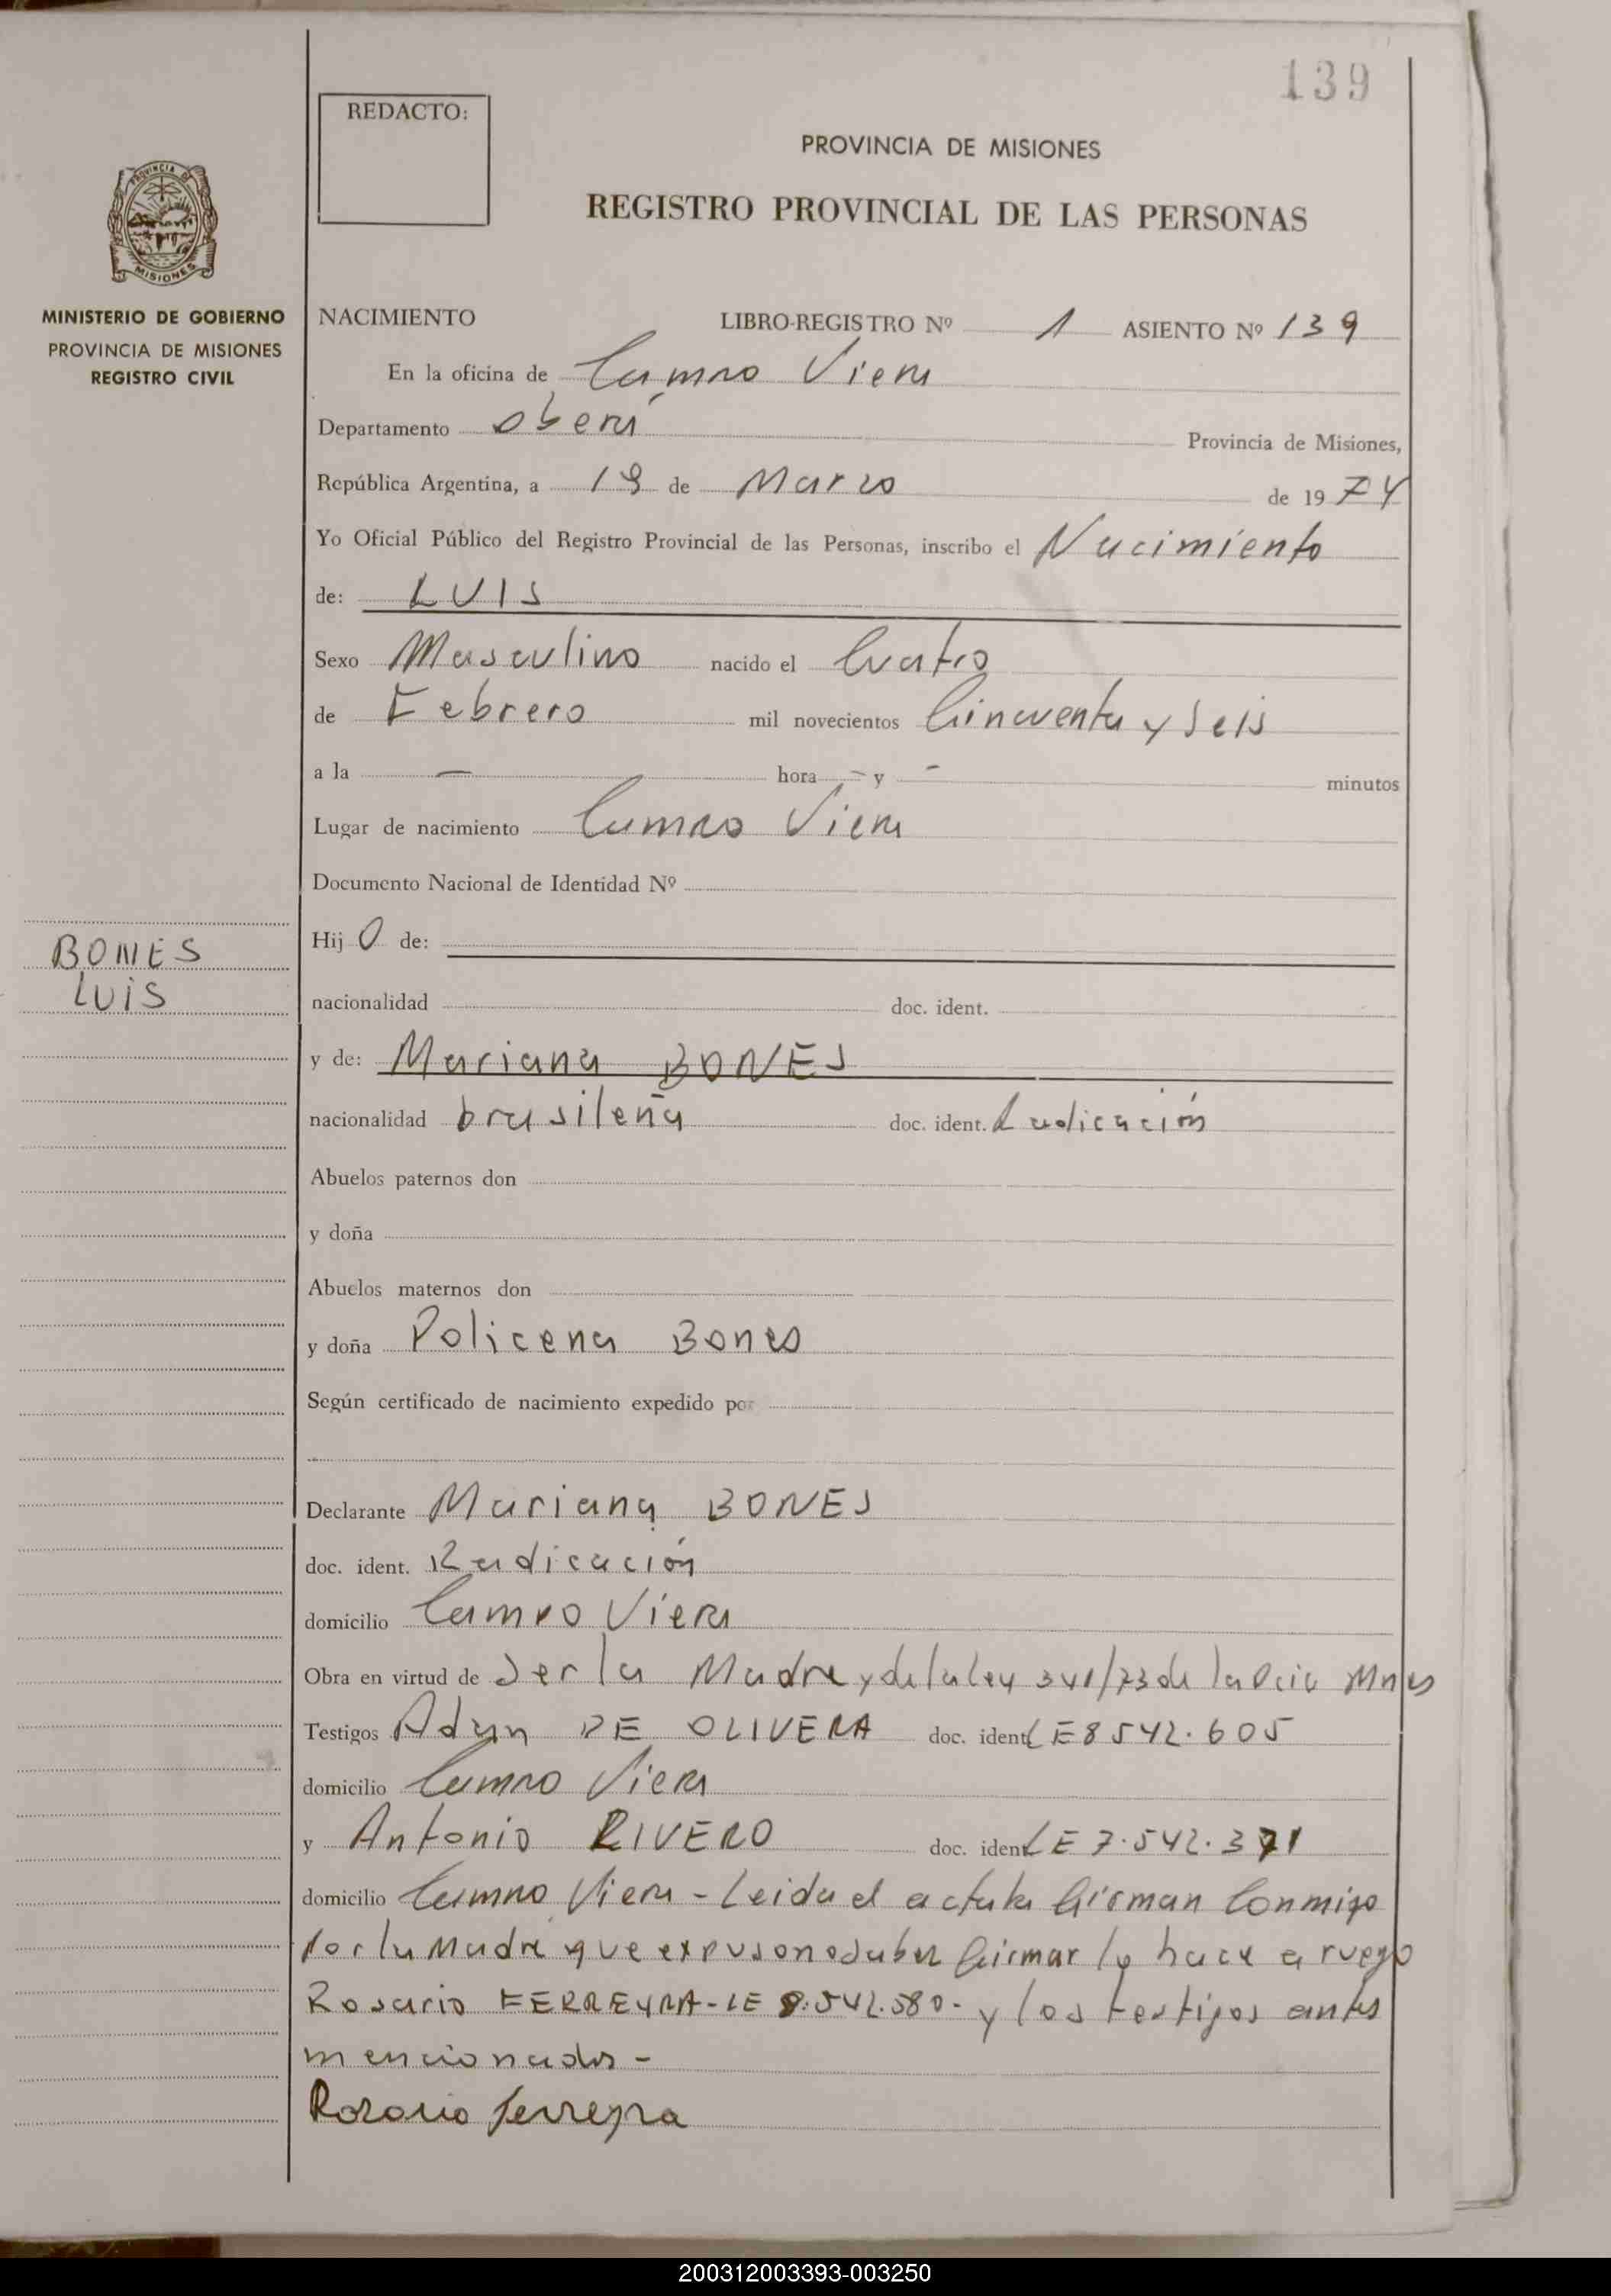 139
REDACTO:
PROVINCIA DE MISIONES
REGISTRO PROVINCIAL DE LAS PERSONAS
PROVINCIA DE
MISIONES
MINISTERIO DE GOBIERNO
PROVINCIA DE MISIONES
REGISTRO CIVIL
NACIMIENTO LIBRO-REGISTRO Nº 1 ASIENTO Nº 139
En la oficina de Campo Viera
Departamento Oberá Provincia de Misiones,
República Argentina, a 19 de Marzo de 1974
Yo Oficial Público del Registro Provincial de las Personas, inscribo el Nacimiento
de: LUIS
Sexo Masculino nacido el Cuatro
de Febrero mil novecientos Cincuenta y Seis
a la — hora - y - minutos
Lugar de nacimiento Campo Viera
Documento Nacional de Identidad Nº
Hijo de:
BONES
LUIS
nacionalidad doc. ident.
y de: Mariana BONES
nacionalidad brasileña doc. ident. Radicación
Abuelos paternos don
y doña
Abuelos maternos don
y doña Policena Bones
Según certificado de nacimiento expedido por
Declarante Mariana BONES
doc. ident. Radicación
domicilio Campo Viera
Obra en virtud de Ser la Madre y de la ley 341/73 de la Pcia Mnes
Testigos Adan DE OLIVERA doc. ident LE 8542.605
domicilio Campo Viera
y Antonio RIVERO doc. ident LE 7.542.371
domicilio Campo Viera - Leida el acta la firman Conmigo
Por la Madre que expuso no saber firmar lo hace a ruego
Rosario FERREYRA - LE 8.542.580 - y los testigos antes
mencionados -
Rosario Ferreyra
200312003393-003250